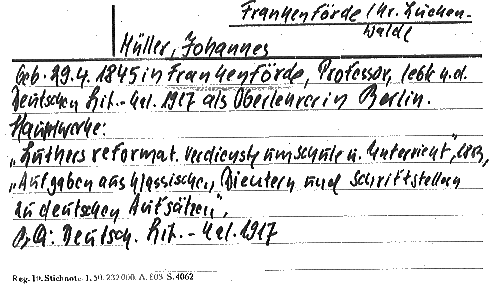 Frankenförde / Kr. Lücken-
walde
Müller, Johannes
Geb. 29.4. 1845 in Frankenförde, Professor, lebt n.d.
Deutschen Lit.-Kal. 1917 als Oberlehrer in Berlin.
Hauptwerke:
"Luthers reformat. Verdienste um Schule u. Unterricht", 1883,
"Aufgaben aus klassischen Dichtern und Schriftstellern
zu deutschen Aufsätzen",
Deutsch. Lit. - Kal. 1917
Reg. 19. Stichnote 1. 50. 232 000. A. 803 S. 4062